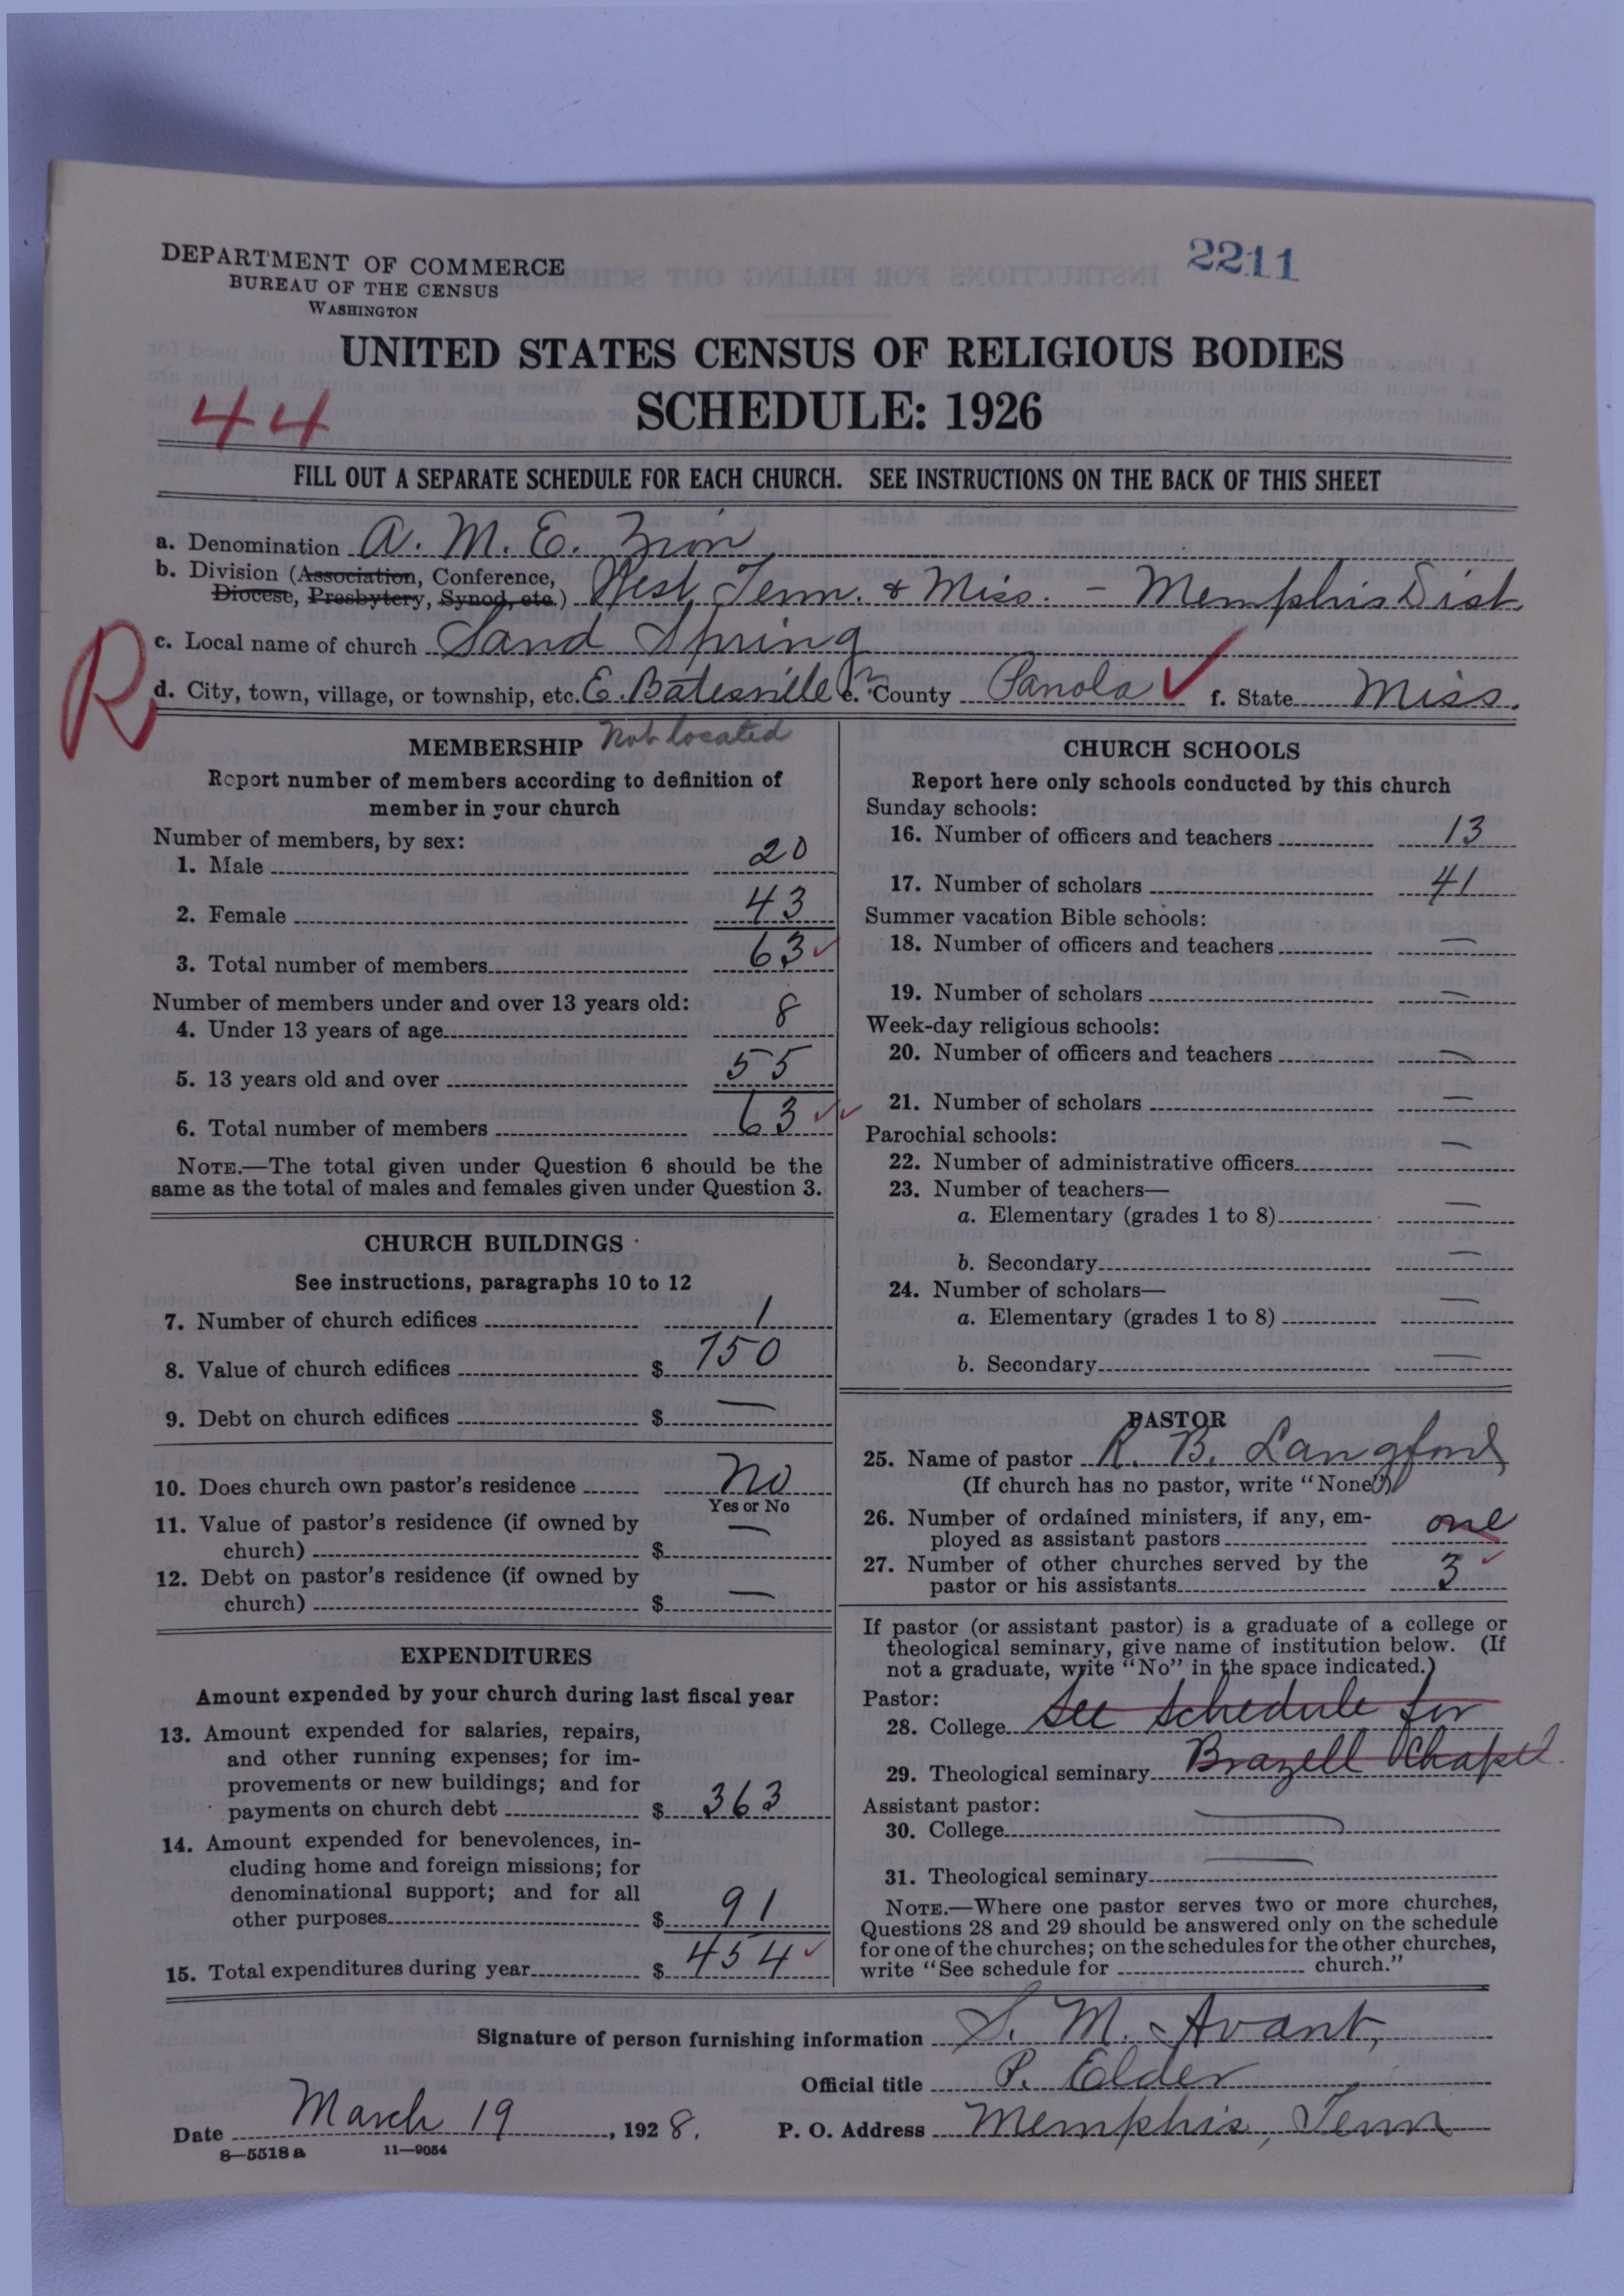 2211
DEPARTMENT OF COMMERCE
BUREAU OF THE CENSUS
WASHINGTON
UNITED STATES CENSUS OF RELIGIOUS BODIES
SCHEDULE: 1926
44
FILL OUT A SEPARATE SCHEDULE FOR EACH CHURCH. SEE INSTRUCTIONS ON THE BACK OF THIS SHEET
a. Denomination A. M. E. Zion
b. Division (Association, Conference, Diocese, Presbytery, Synod, etc.) West Tenn. & Miss. - Memphis Dist.
c. Local name of church Sand Spring
R
d. City, town, village, or township, etc. E. Batesville e. County Panola f. State Miss.
MEMBERSHIP Not located
Report number of members according to definition of
member in your church
Number of members, by sex:
1. Male 20
2. Female 43
3. Total number of members 63
Number of members under and over 13 years old:
4. Under 13 years of age 8
5. 13 years old and over 55
6. Total number of members 63
NOTE.—The total given under Question 6 should be the
same as the total of males and females given under Question 3.
CHURCH BUILDINGS
See instructions, paragraphs 10 to 12
7. Number of church edifices 1
8. Value of church edifices $ 750
9. Debt on church edifices $ —
10. Does church own pastor's residence No
Yes or No
11. Value of pastor's residence (if owned by
church) $ —
12. Debt on pastor's residence (if owned by
church) $ —
EXPENDITURES
Amount expended by your church during last fiscal year
13. Amount expended for salaries, repairs,
and other running expenses; for im-
provements or new buildings; and for
payments on church debt $ 363
14. Amount expended for benevolences, in-
cluding home and foreign missions; for
denominational support; and for all
other purposes $ 91
15. Total expenditures during year $ 454
CHURCH SCHOOLS
Report here only schools conducted by this church
Sunday schools:
16. Number of officers and teachers 13
17. Number of scholars 41
Summer vacation Bible schools:
18. Number of officers and teachers —
19. Number of scholars —
Week-day religious schools:
20. Number of officers and teachers —
21. Number of scholars —
Parochial schools:
22. Number of administrative officers —
23. Number of teachers—
a. Elementary (grades 1 to 8) —
b. Secondary —
24. Number of scholars—
a. Elementary (grades 1 to 8) —
b. Secondary —
PASTOR
25. Name of pastor R. B. Langford
(If church has no pastor, write "None")
26. Number of ordained ministers, if any, em-
ployed as assistant pastors one
27. Number of other churches served by the
pastor or his assistants 3
If pastor (or assistant pastor) is a graduate of a college or
theological seminary, give name of institution below. (If
not a graduate, write "No" in the space indicated.)
Pastor:
28. College See schedule for
29. Theological seminary Brazell Chapel
Assistant pastor:
30. College —
31. Theological seminary —
NOTE.—Where one pastor serves two or more churches,
Questions 28 and 29 should be answered only on the schedule
for one of the churches; on the schedules for the other churches,
write "See schedule for ---------- church."
Signature of person furnishing information S. M. Avant,
Official title P. Elder
Date March 19, 1928. P. O. Address Memphis, Tenn
8—5518a 11—9054